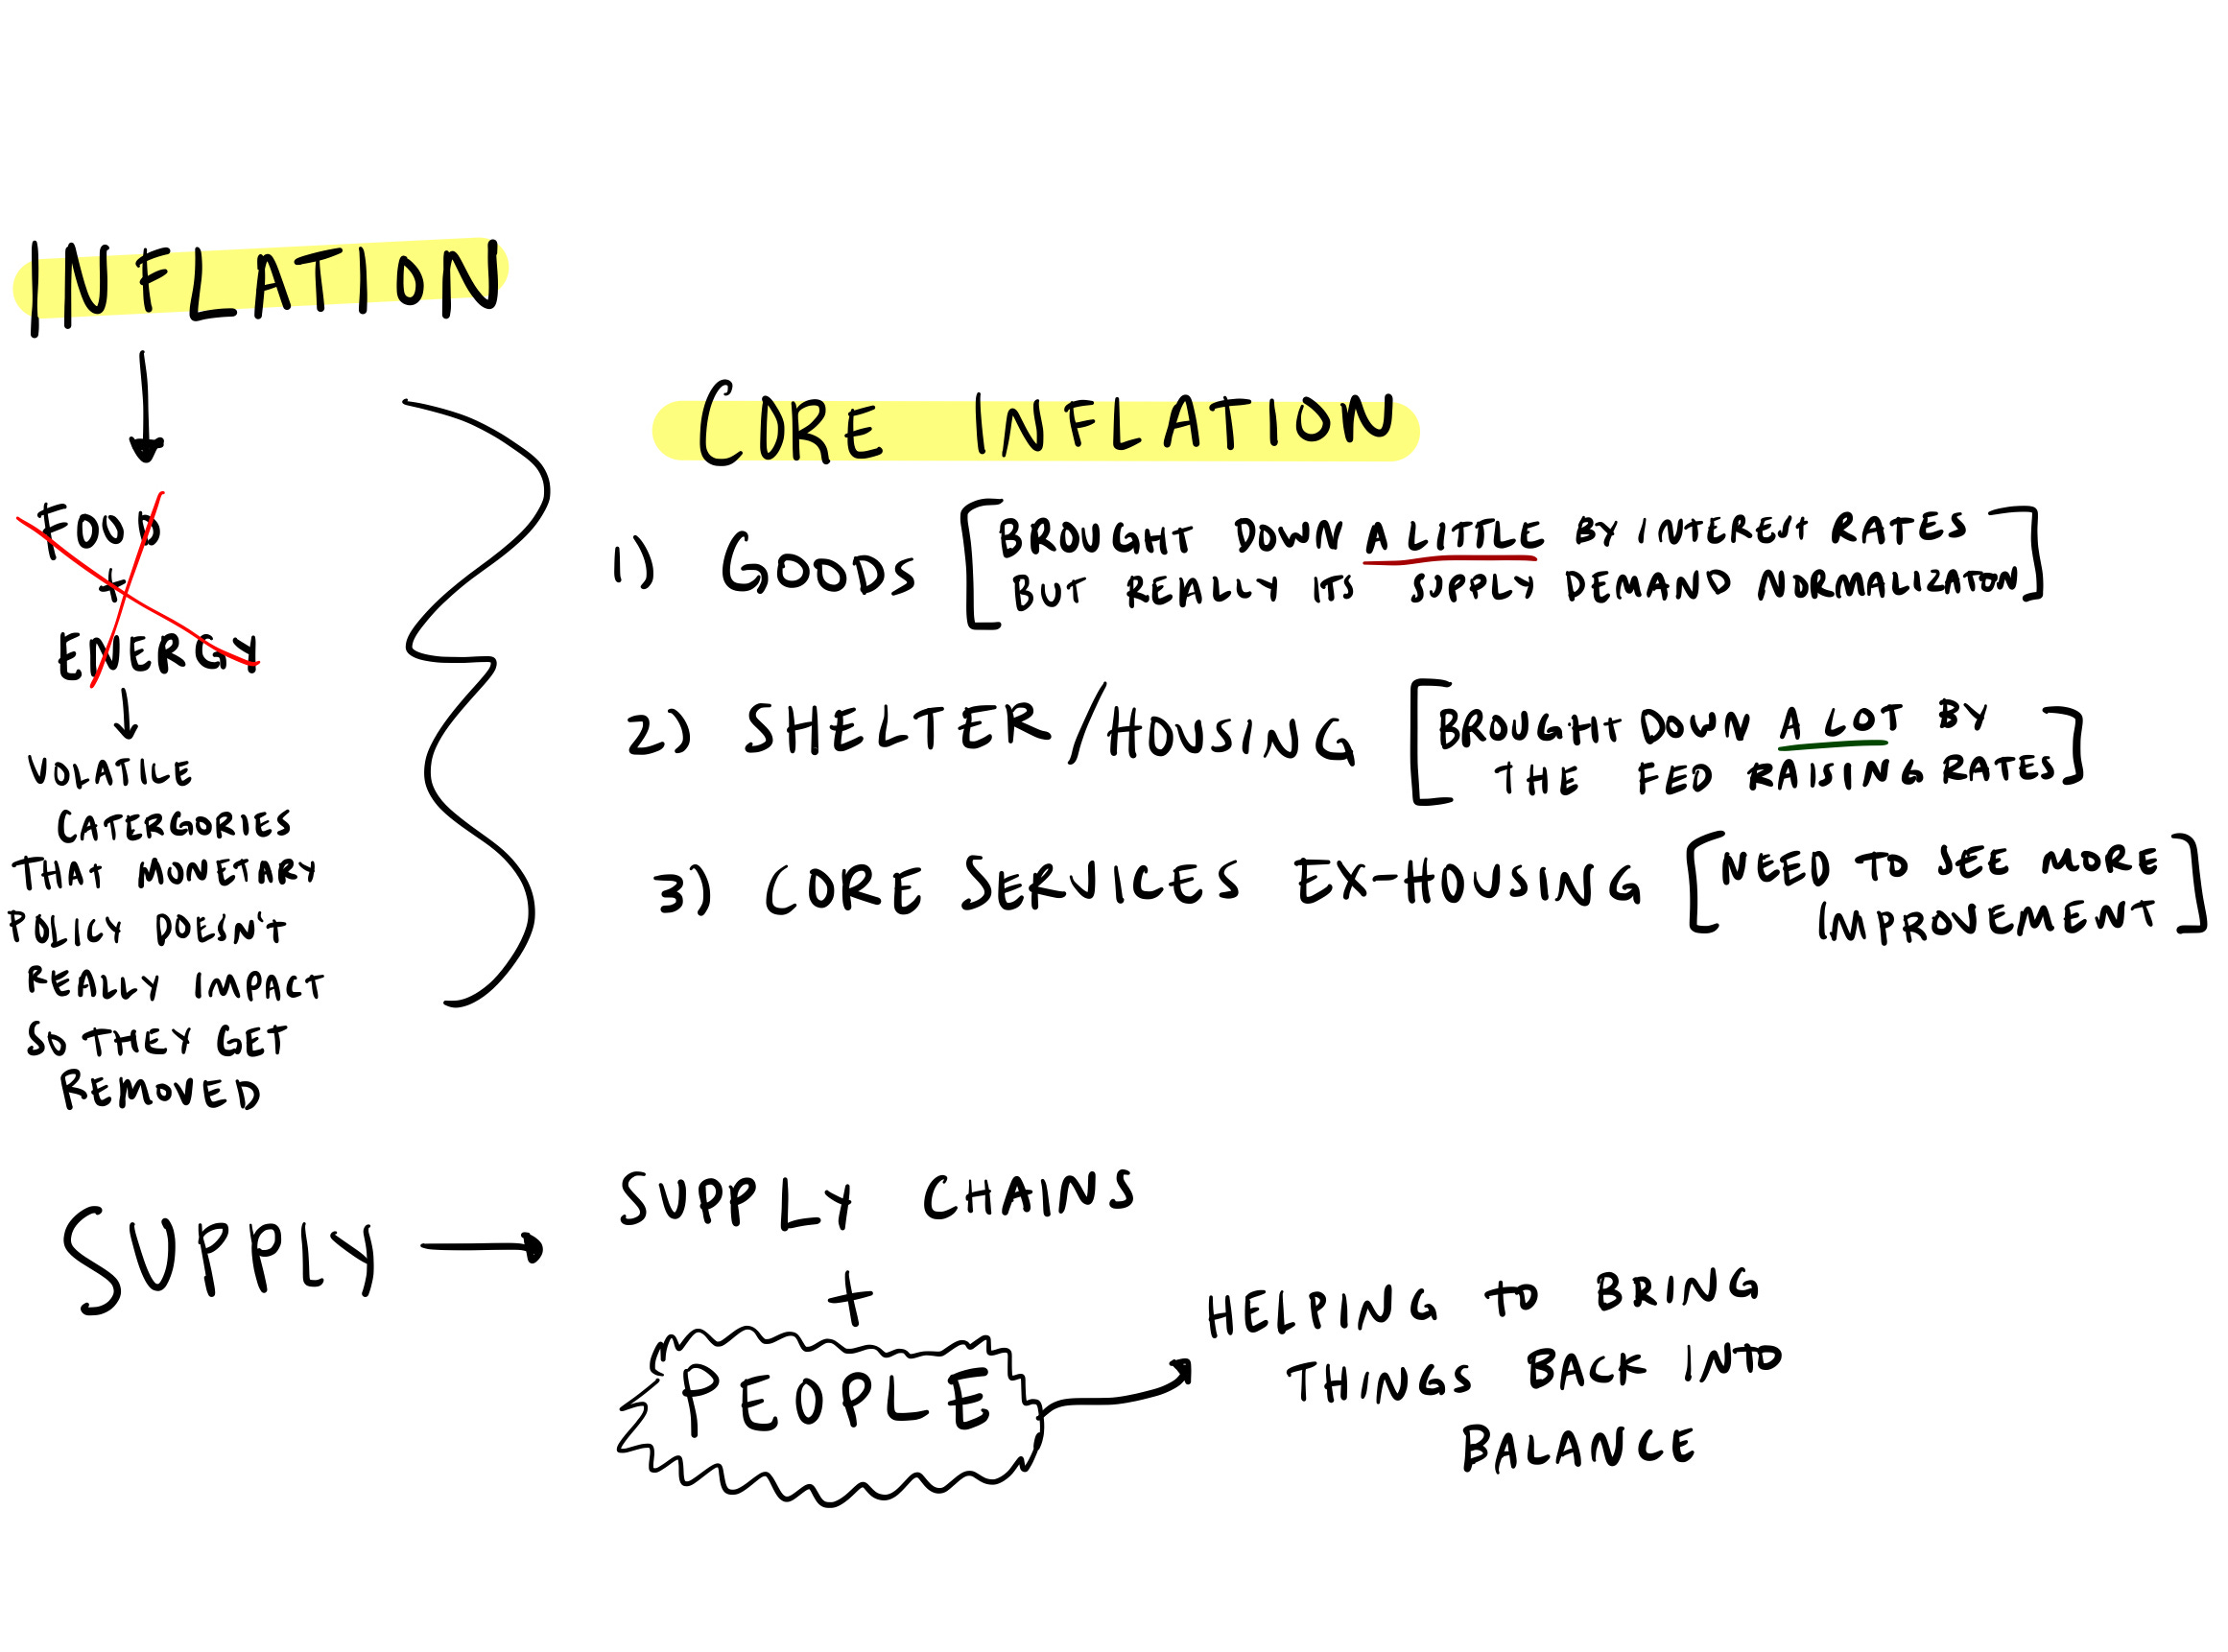 INFLATION
FOOD
+
ENERGY
VOLATILE
CATERGORIES
THAT MONETARY
POLICY DOESN'T
REALLY IMPACT
SO THEY GET
REMOVED
CORE INFLATION
1) GOODS [BROUGHT DOWN A LITTLE BY INTEREST RATES
BUT REALLY ITS SUPPLY DEMAND NORMALIZATON]
2) SHELTER/HOUSING [BROUGHT DOWN A LOT BY
THE FED RAISING RATES]
3) CORE SERVICES EX-HOUSING [NEED TO SEE MORE
IMPROVEMENT]
SUPPLY
SUPPLY CHAINS
+
PEOPLE
HELPING TO BRING
THINGS BACK INTO
BALANCE